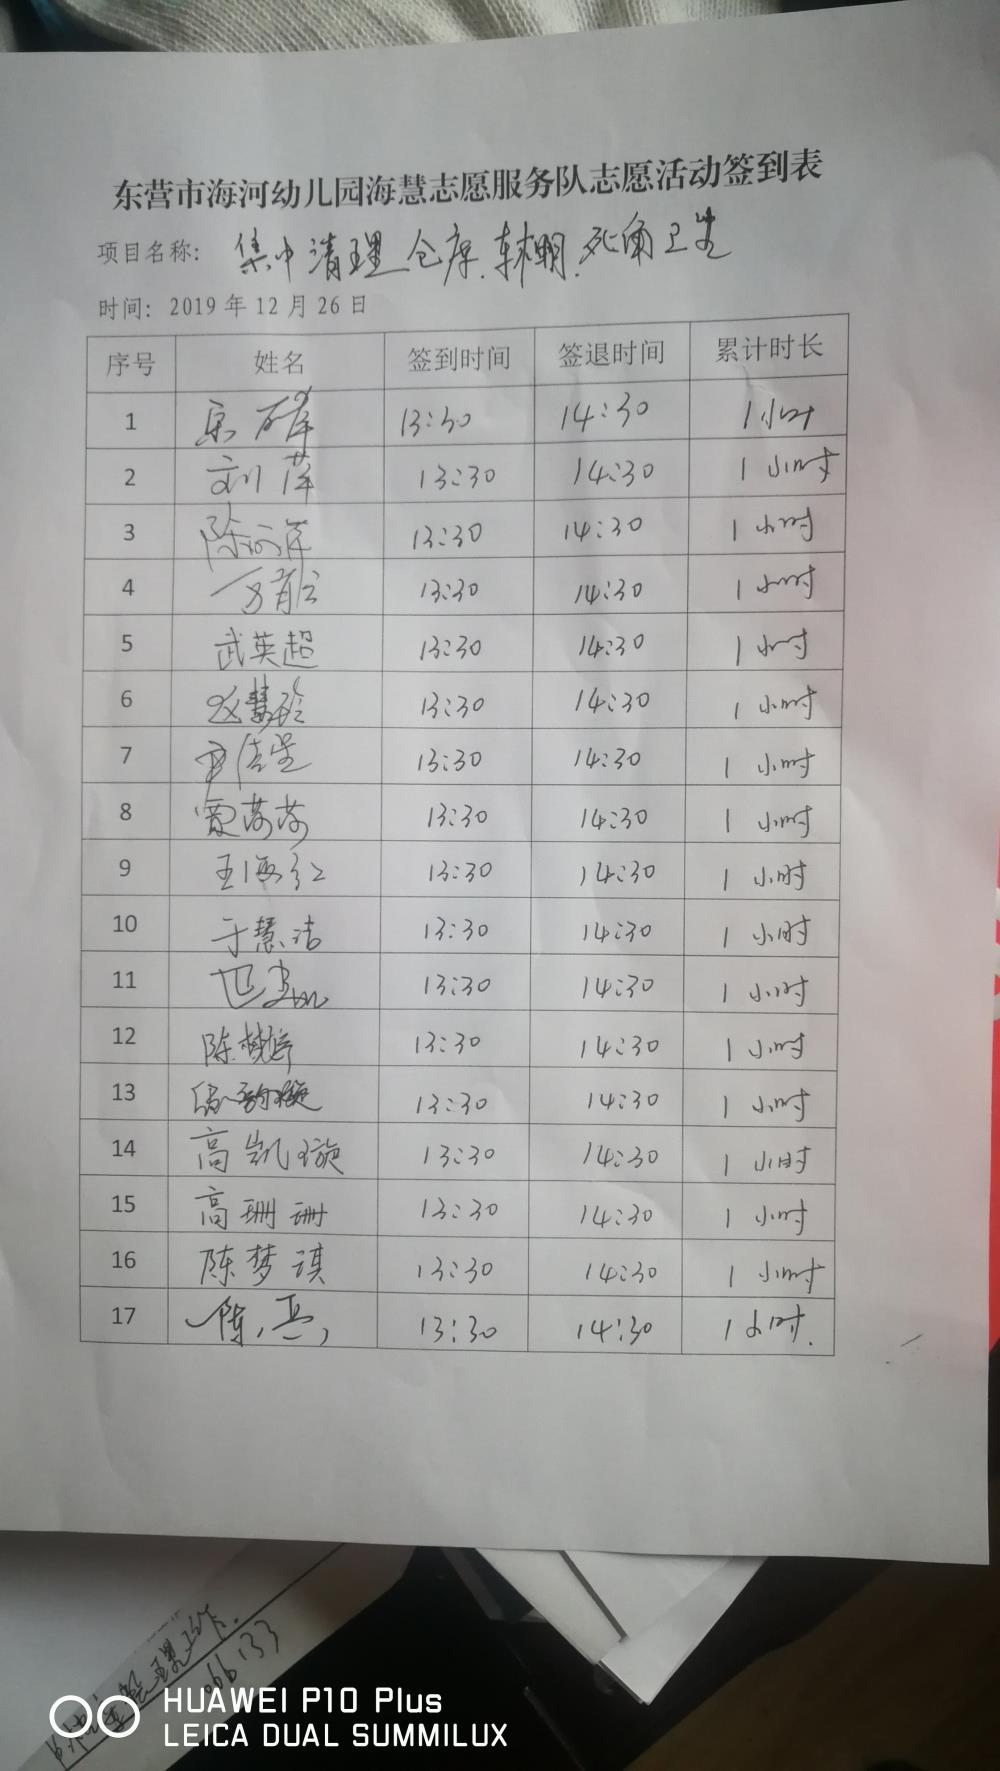 东营市海河幼儿园海慧志愿服务队志愿活动签到表
项目名称: 集中清理仓库、车棚、死角卫生
时间: 2019年12月26日
序号 姓名 签到时间 签退时间 累计时长
1 13:30 14:30 1小时
2 刘萍 13:30 14:30 1小时
3 13:30 14:30 1小时
4 13:30 14:30 1小时
5 武英超 13:30 14:30 1小时
6 赵慧玲 13:30 14:30 1小时
7 13:30 14:30 1小时
8 13:30 14:30 1小时
9 王海红 13:30 14:30 1小时
10 于慧洁 13:30 14:30 1小时
11 13:30 14:30 1小时
12 陈梦婷 13:30 14:30 1小时
13 13:30 14:30 1小时
14 高凯璇 13:30 14:30 1小时
15 高珊珊 13:30 14:30 1小时
16 陈梦琪 13:30 14:30 1小时
17 13:30 14:30 1小时.
HUAWEI P10 Plus
LEICA DUAL SUMMILUX